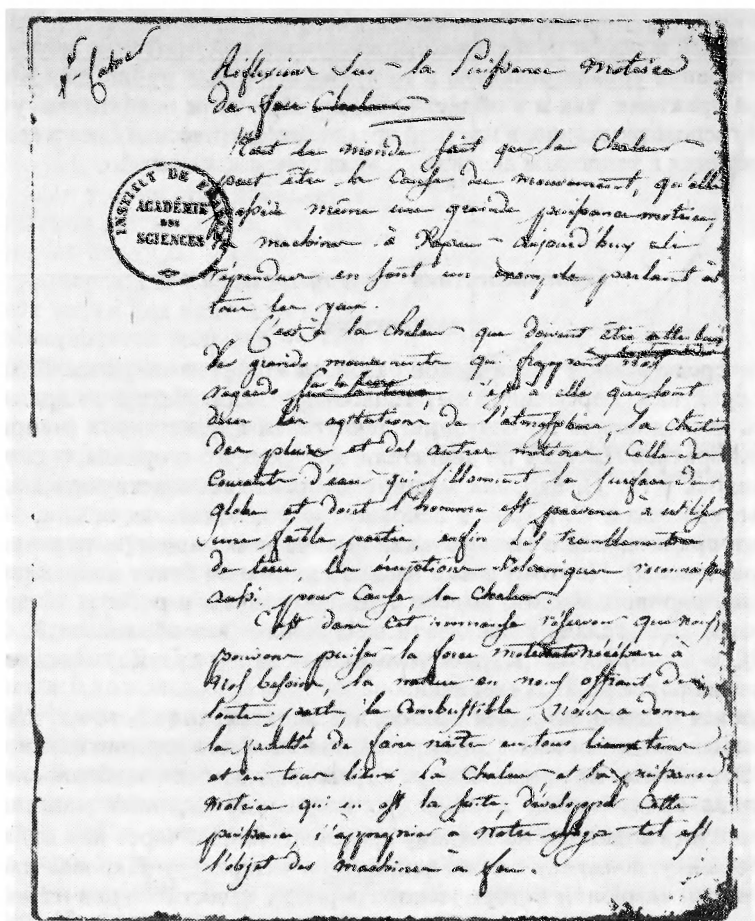 Carnot
Réflexions sur la Puissance Motrice
du feu Chaleur
Tout le monde sait que la Chaleur
peut être la cause du mouvement, qu'elle
possède même une grande puissance motrice,
les machines à Vapeur aujourd'huy si
répandues en sont un exemple parlant à
tous les yeux
INSTITUT DE FRANCE
ACADÉMIE
DES
SCIENCES
C'est à la chaleur que doivent être attribués
les grands mouvements qui frappent nos
regards sur la terre c'est à elle que sont
dues les agitations de l'atmosphère la chute
des pluies et des autres météores, celle des
Courants d'eau qui sillonnent la surface du
globe et dont l'homme est parvenu à utiliser
une faible partie enfin les tremblements
de terre les éruptions volcaniques reconnaissent
aussi pour cause la chaleur.
C'est dans cet immense réservoir que nous
pouvons puiser la force motrice nécessaire à
nos besoins la nature en nous offrant de
toutes parts le combustible nous a donné
la faculté de faire naitre en tous temps
et en tous lieux la chaleur et la puissance
motrice qui en est la suite, développer cette
puissance, l'approprier à notre usage tel est
l'objet des machines à feu.